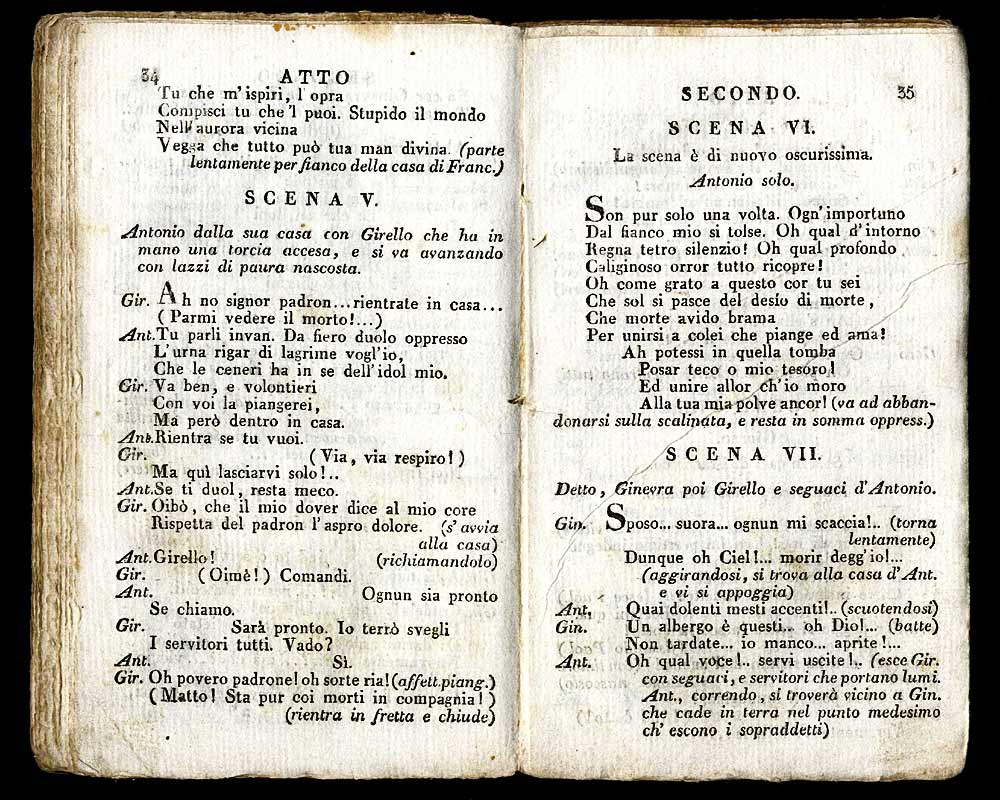 34 ATTO
Tu che m'ispiri, l'opra
Compisci tu che 'l puoi. Stupido il mondo
Nell'aurora vicina
Vegga che tutto può tua man divina. (parte
lentamente per fianco della casa di Franc.)
SCENA V.
Antonio dalla sua casa con Girello che ha in
mano una torcia accesa, e si va avanzando
con lazzi di paura nascosta.
Gir. Ah no signor padron...rientrate in casa...
(Parmi vedere il morto!...)
Ant. Tu parli invan. Da fiero duolo oppresso
L'urna rigar di lagrime vogl'io,
Che le ceneri ha in se dell'idol mio.
Gir. Va ben, e volontieri
Con voi la piangerei,
Ma però dentro in casa.
Ant. Rientra se tu vuoi.
Gir. (Via, via respiro!)
Ma quì lasciarvi solo!..
Ant. Se ti duol, resta meco.
Gir. Oibò, che il mio dover dice al mio core
Rispetta del padron l'aspro dolore. (s'avvia
alla casa)
Ant. Girello! (richiamandolo)
Gir. (Oimè!) Comandi.
Ant. Ognun sia pronto
Se chiamo.
Gir. Sarà pronto. Io terrò svegli
I servitori tutti. Vado?
Ant. Sì.
Gir. Oh povero padrone! oh sorte ria! (affett.piang.)
(Matto! Sta pur coi morti in compagnia!)
(rientra in fretta e chiude)
SECONDO. 35
SCENA VI.
La scena è di nuovo oscurissima.
Antonio solo.
Son pur solo una volta. Ogn'importuno
Dal fianco mio si tolse. Oh qual d'intorno
Regna tetro silenzio! Oh qual profondo
Caliginoso orror tutto ricopre!
Oh come grato a questo cor tu sei
Che sol si pasce del desio di morte,
Che morte avido brama
Per unirsi a colei che piange ed ama!
Ah potessi in quella tomba
Posar teco o mio tesoro!
Ed unire allor ch'io moro
Alla tua mia polve ancor! (va ad abban-
donarsi sulla scalinata, e resta in somma oppress.)
SCENA VII.
Detto, Ginevra poi Girello e seguaci d'Antonio.
Gin. Sposo... suora... ognun mi scaccia!.. (torna
lentamente)
Dunque oh Ciel!... morir degg'io!...
(aggirandosi, si trova alla casa d'Ant.
e vi si appoggia)
Ant. Quai dolenti mesti accenti!.. (scuotendosi)
Gin. Un albergo è questi.. oh Dio!... (batte)
Non tardate... io manco... aprite!...
Ant. Oh qual voce!.. servi uscite!.. (esce Gir.
con seguaci, e servitori che portano lumi.
Ant., correndo, si troverà vicino a Gin.
che cade in terra nel punto medesimo
ch'escono i sopraddetti)